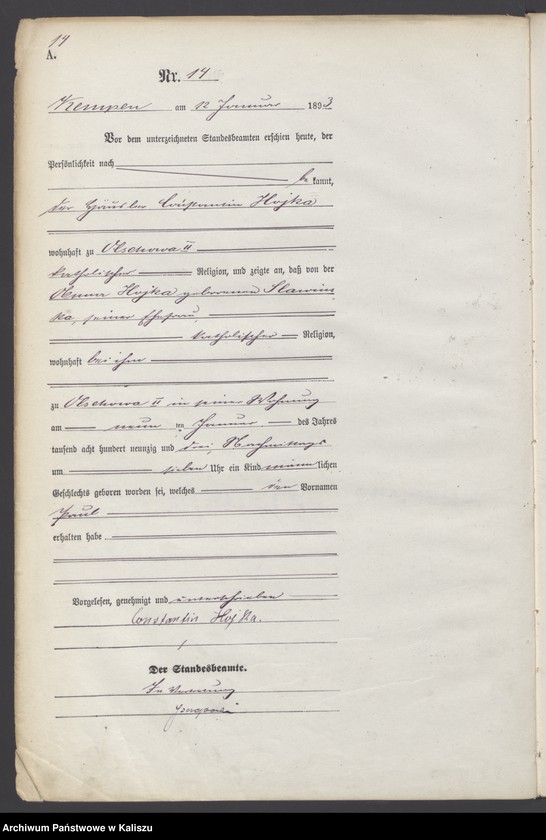 14
A.
Nr. 14
Kempen am 12 Januar 1893
Vor dem unterzeichneten Standesbeamten erschien heute, der
Persönlichkeit nach
be kannt,
der Häusler Constantin Hojka
wohnhaft zu Olschowa II
katholischer Religion, und zeigte an, daß von der
Hojka geborenen Slawins
ka, seiner Ehefrau,
katholischer Religion,
wohnhaft bei ihm
zu Olschowa II in seiner Wohnung
am neun ten Januar des Jahres
tausend acht hundert neunzig und drei Nachmittags
um sieben Uhr ein Kind männlichen
Geschlechts geboren worden sei, welches den Vornamen
Paul
erhalten habe
Vorgelesen, genehmigt und unterschrieben
Constantin Hojka.
Der Standesbeamte.
In Vertretung
Archiwum Państwowe w Kaliszu